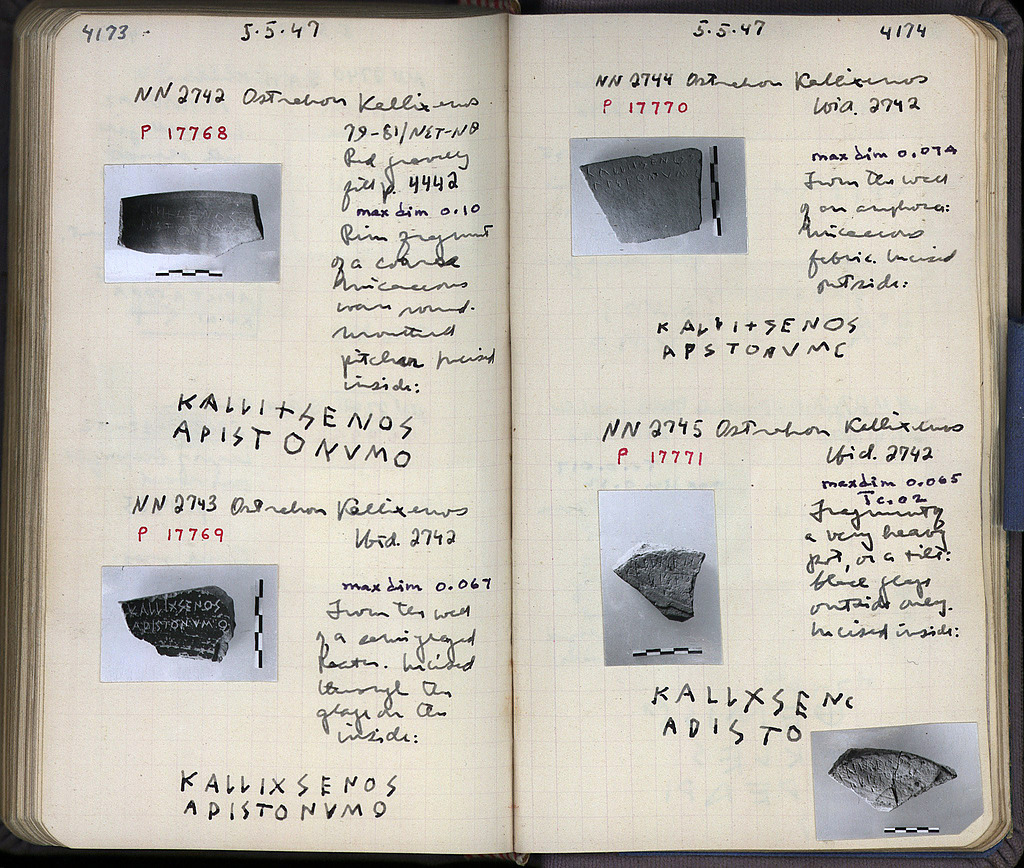 4173
5.5.47
NN 2742 Ostrakon Kallixenos
P 17768
79-81/ΝΕΤ-ΝΘ
Red gravelly
fill p. 4442
max dim 0.10
Rim fragment
of a coarse
micaceous
ware round-
mouthed
pitcher. Incised
inside:
KALLI+SENOS
APISTONVMO
NN 2743 Ostrakon Kallixenos
P 17769
Ibid. 2742
max dim 0.067
From the wall
of a semi-glazed
krater. Incised
through the
glaze on the
inside:
KALLIXSENOS
APISTONVMO
5.5.47
4174
NN 2744 Ostrakon Kallixenos
P 17770
Ibid. 2742
max dim 0.074
From the wall
of an amphora:
micaceous
fabric. Incised
outside:
KALLI+SENOS
APSTONVMC
NN 2745 Ostrakon Kallixenos
P 17771
Ibid. 2742
max dim 0.065
Tc. 02
Fragment of
a very heavy
pot, or a tile:
black glaze
outside only.
Incised inside:
KALLXSENC
ADISTO